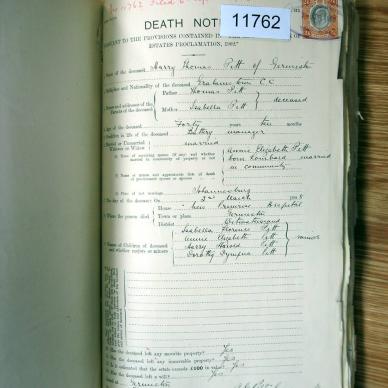 DEATH NOT
11762
PURSUANT TO THE PROVISIONS CONTAINED IN THE
OF
ESTATES PROCLAMATION, 1902."
Name of the deceased Harry Thomas Pett of Germiston
Birthplace and Nationality of the deceased Grahamstown C.C.
Names and addresses of the Parents of the deceased Father Thomas Pett
Mother Isabella Pett deceased
Age of the deceased Forty years ten months
Condition in life of the deceased Battery manager
Married or Unmarried married
Widower or Widow Annie Elizabeth Pett
born Lombaard married
in community
Place of last marriage Johannesburg
The day of the decease On 3rd March
Where the person died House New Primrose Hospital
Town or place Germiston
District Witwatersrand
Names of Children of deceased and whether majors or minors Isabella Florence Pett
Annie Elizabeth Pett
Harry Harold Pett
Dorothy Dympna Pett
minors
Has the deceased left any movable property? Yes
Has the deceased left any immovable property? Yes
Is it estimated that the estate exceeds £300 in value? Yes
Has the deceased left a will? Yes
Germiston